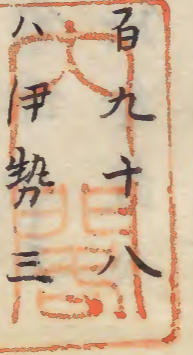 百九十八
ハ伊勢三